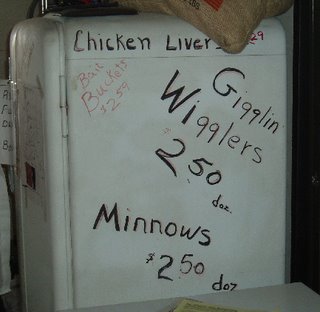 Chicken Livers
Bait
Buckets
$2.59
Gigglin'
Wigglers
2.50
doz.
Minnows
$2.50
doz